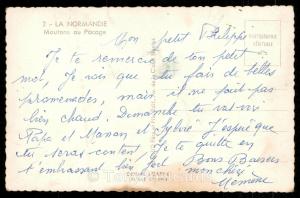 2 - LA NORMANDIE
Moutons au Pacage
Mon petit Philippe
Je te remercie de ton petit
mot, Je vois que tu fais de belles
promenades, mais il ne fait pas
bien chaud. Dimanche tu vas voir
Papa et Maman et Sylvie J'espère que
tu seras content Je te quitte en
t'embrassant bien fort
Bons Baisers
mon chéri
Mémère